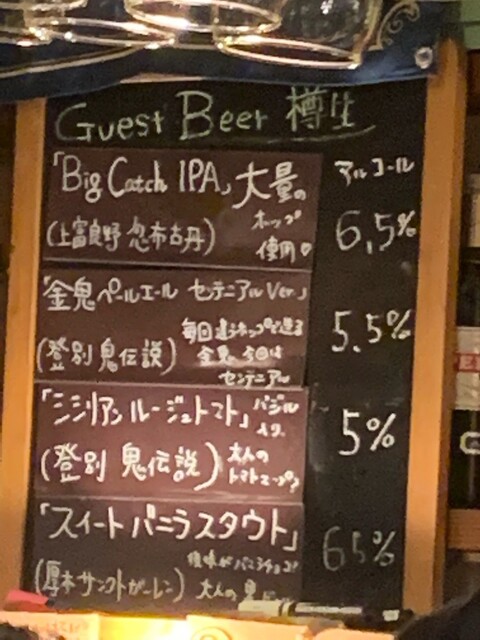 Guest Beer 樽生
アルコール
「Big Catch IPA」大量の
ホップ
(上富良野 忽布古丹) 使用♡
6.5%
「金鬼ペールエール センテニアルVer.」
毎回違うホップで造る
(登別鬼伝説) 金鬼、今回は
センテニアル
5.5%
「シシリアンルージュトマト」バジル
入り。
(登別 鬼伝説) 大人の
トマトスープ♪
5%
「スイートバニラスタウト」
後味がバニラチョコ!
(厚木サンクトガーレン) 大人の黒
6.5%